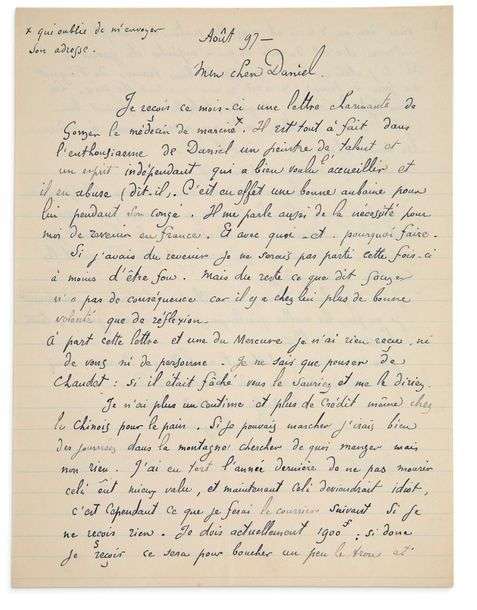 * qui oublie de m'envoyer
son adresse.
Août 97 –
Mon cher Daniel.
Je reçois ce mois-ci une lettre charmante de
Gouzer le médecin de marine *. Il est tout à fait dans
l'enthousiasme de Daniel un peintre de talent et
un esprit indépendant qui a bien voulu l'accueillir et
il en abuse (dit-il). C'est en effet une bonne aubaine pour
lui pendant son congé. Il me parle aussi de la nécessité pour
moi de revenir en france. Et avec quoi – et – pourquoi faire.
Si j'avais du revenir je ne serais pas parti cette fois-ci
à moins d'être fou. Mais du reste ce que dit Gouzer
n'a pas de conséquence car il y a chez lui plus de bonne
volonté que de réflexion –
A part cette lettre et une du Mercure je n'ai rien reçu, ni
de vous ni de personne. Je ne sais que penser de
Chaudet : si il était fâché vous le sauriez et me le diriez.
Je n'ai plus un centime et plus de crédit même chez
le Chinois pour le pain. Si je pouvais marcher j'irais bien
des journées dans la montagne chercher de quoi manger mais
non rien. J'ai eu tort l'année dernière de ne pas mourir
celà eût mieux valu, et maintenant celà deviendrait idiot,
c'est cependant ce que je ferai le courrier suivant si je
ne reçois rien. Je dois actuellement 1900 f ; si donc
je reçois ce sera pour boucher un peu le trou et